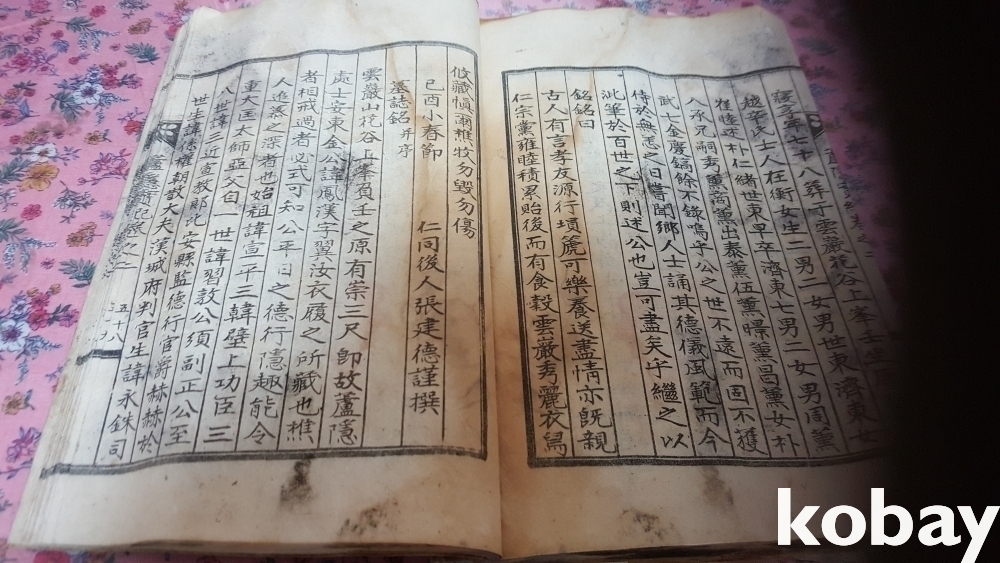 葬于雲巖花谷上峯壬
越辛氏士人在衡女生二男二女男世東濟東女
朴仁緖世東早卒濟東七男二女男周薰
八承兄嗣秀薰商薰出泰薰伍薰暻薰昌薰女朴
武七金慶鎬餘不錄嗚乎公之世不遠而固不獲
侍於無恙之日嘗聞鄕人士誦其德儀風範而今
此筆於百世之下則述公也豈可盡矣乎繼之以
銘銘曰
古人有言孝友源行塤篪可樂養送盡情亦旣親
仁宗黨雍睦積累貽後而有食穀雲巖秀麗衣舃
攸藏愼爾樵牧勿毁勿傷
己酉小春節 仁同後人張建德謹撰
墓誌銘 幷序
雲巖山花谷上峯負壬之原有崇三尺卽故蘆隱
處士安東金公諱鳳漢字翼汝衣履之所藏也樵
者相戒過者必式可知公平日之德行隱趣能令
人追慕之深者也始祖諱宣平三韓壁上功臣三
重大匡太師亞父自一世諱習敎公須副正公至
八世諱三近宣敎郞比安縣監德行官爵赫赫於
世生諱係權朝散大夫漢城府判官生諱永銖司
五十八
kobay